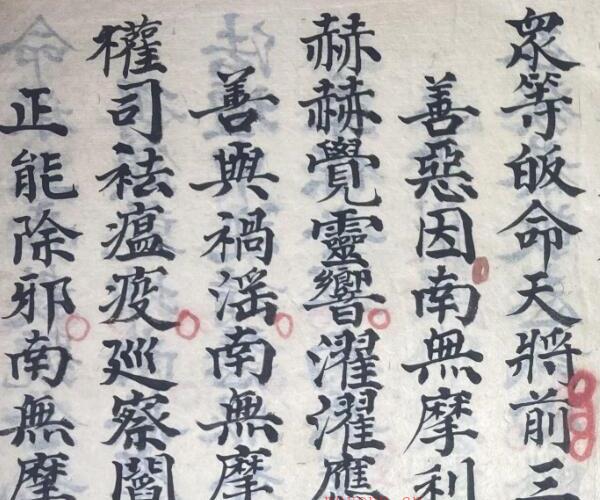 眾等皈命天將前三
善惡因南無摩利
赫赫覺靈響濯濯應
善與禍淫南無摩
權司祛瘟疫巡察闇
正能除邪南無摩